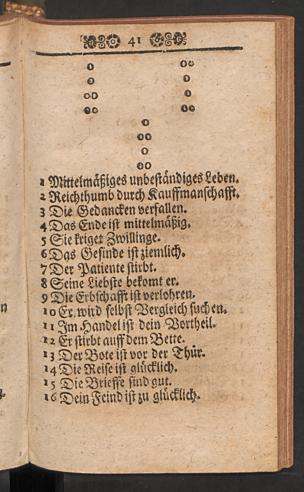 41
1 Mittelmäßiges unbeständiges Leben.
2 Reichthumb durch Kauffmanschafft.
3 Die Gedancken verfallen.
4 Das Ende ist mittelmäßig.
5 Sie kriget Zwillinge.
6 Das Gesinde ist ziemlich.
7 Der Patiente stirbt.
8 Seine Liebste bekomt er.
9 Die Erbschafft ist verlohren.
10 Er wird selbst Vergleich suchen.
11 Im Handel ist dein Vortheil.
12 Er stirbt auff dem Bette.
13 Der Bote ist vor der Thür.
14 Die Reise ist glücklich.
15 Die Brieffe sind gut.
16 Dein Feind ist zu glücklich.